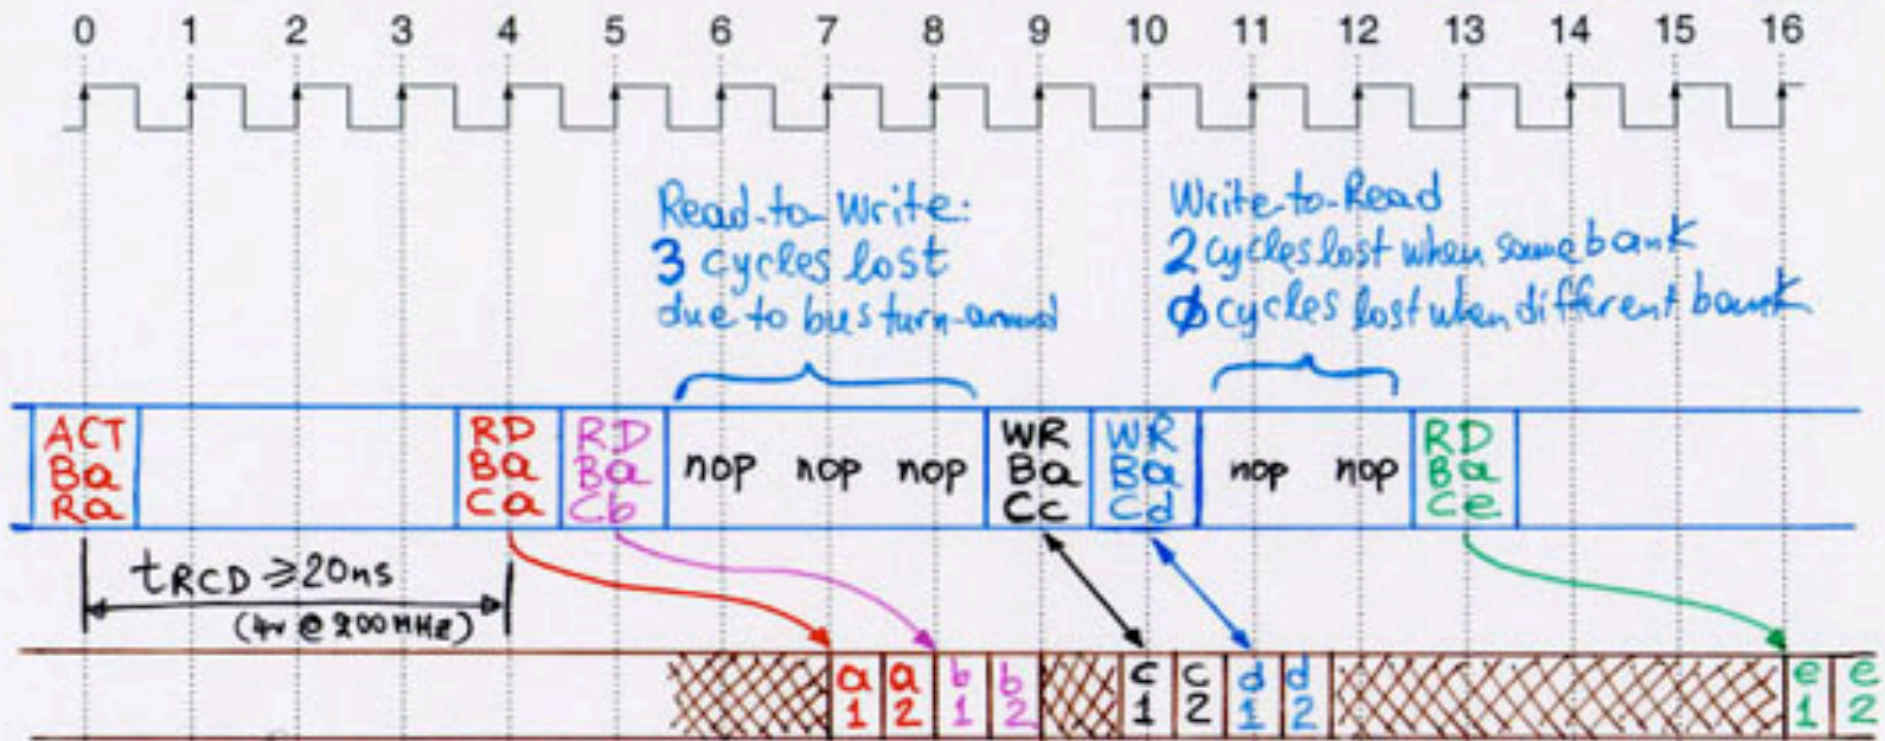 0 1 2 3 4 5 6 7 8 9 10 11 12 13 14 15 16
Read-to-Write:
3 cycles lost
due to bus turn-around
Write-to-Read
2 cycles lost when same bank
0 cycles lost when different bank
ACT
Ba
Ra
RD
Ba
Ca
RD
Ba
Cb
nop nop nop
WR
Ba
Cc
WR
Ba
Cd
nop nop
RD
Ba
Ce
tRCD ≥ 20ns
(4~ @ 200MHz)
a a b b c c d d e e
1 2 1 2 1 2 1 2 1 2